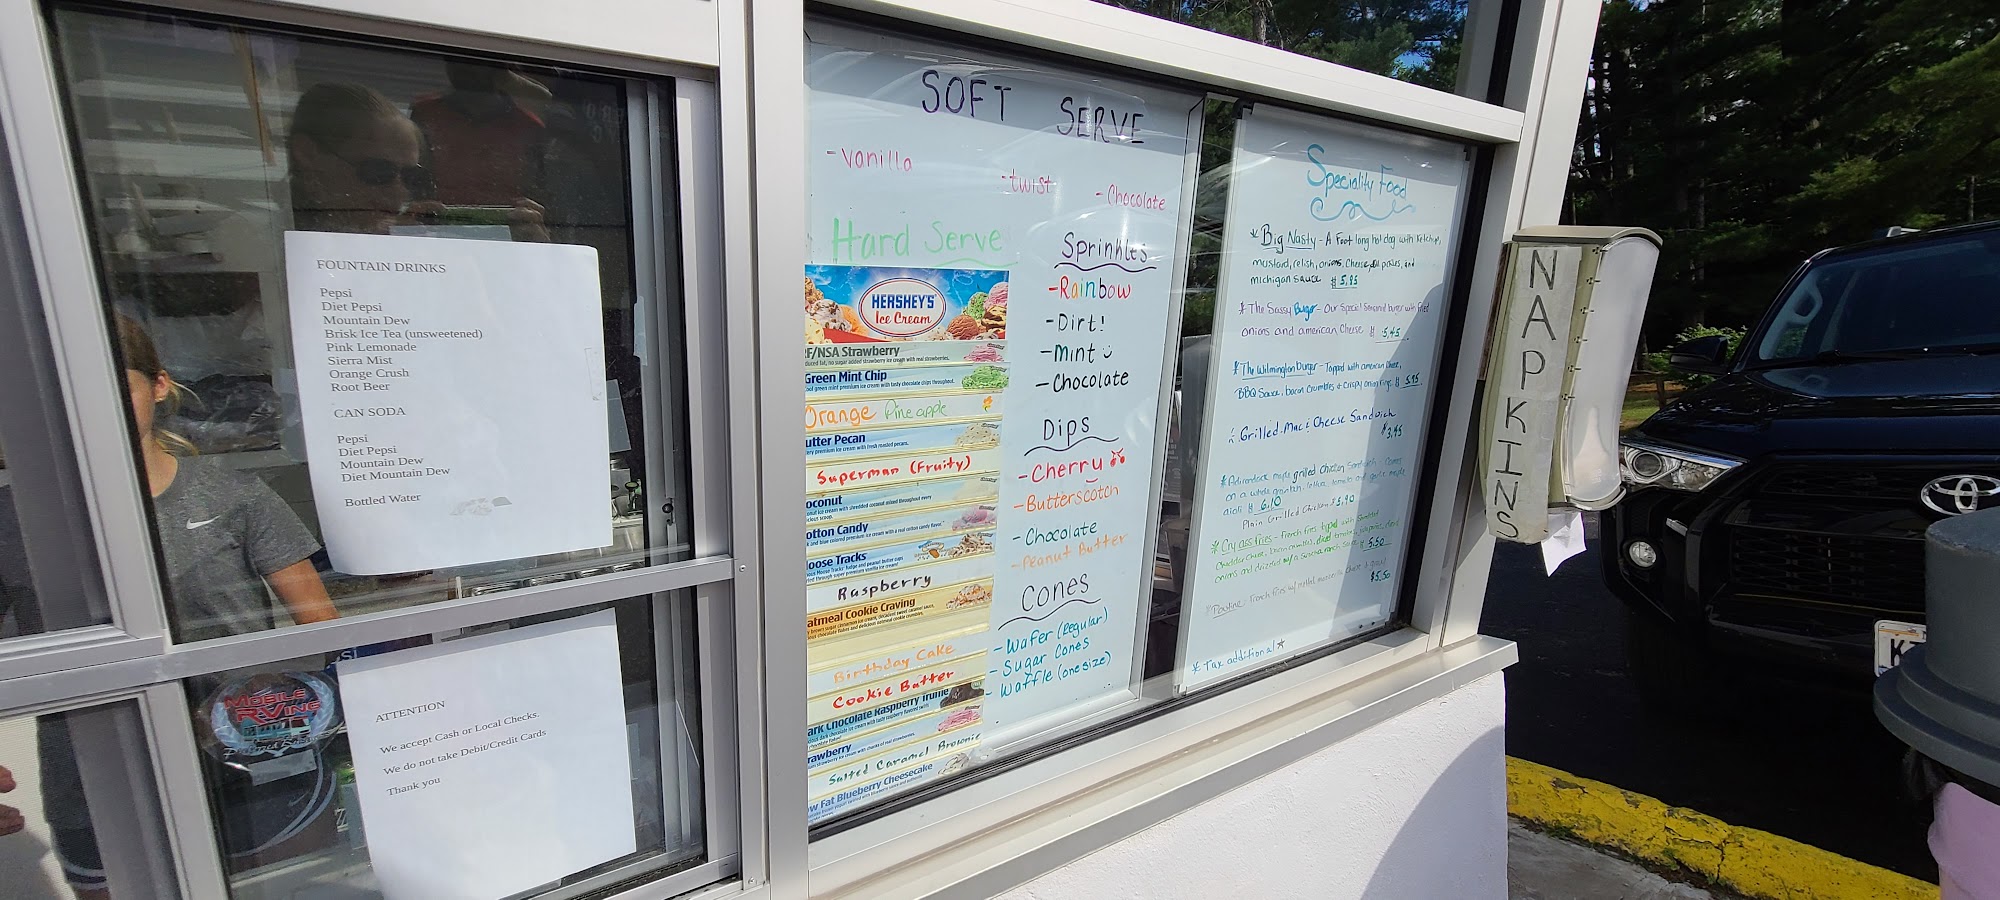 FOUNTAIN DRINKS
Pepsi
Diet Pepsi
Mountain Dew
Brisk Ice Tea (unsweetened)
Pink Lemonade
Sierra Mist
Orange Crush
Root Beer
CAN SODA
Pepsi
Diet Pepsi
Mountain Dew
Diet Mountain Dew
Bottled Water
MOBILE
RVING
ATTENTION
We accept Cash or Local Checks.
We do not take Debit/Credit Cards
Thank you
SOFT SERVE
-Vanilla
-twist
-Chocolate
Hard Serve
HERSHEY'S
Ice Cream
F/NSA Strawberry
Green Mint Chip
Orange Pineapple
utter Pecan
Superman (Fruity)
oconut
otton Candy
oose Tracks
Raspberry
atmeal Cookie Craving
Birthday Cake
Cookie Batter
ark Chocolate Raspberry Truffle
rawberry
Salted Caramel Brownie
ow Fat Blueberry Cheesecake
Sprinkles
-Rainbow
-Dirt!
-Mint
-Chocolate
Dips
-Cherry
-Butterscotch
-Chocolate
-Peanut Butter
CONES
-Wafer (Regular)
-Sugar Cones
-Waffle (one size)
Speciality Food
* Big Nasty - A Foot long hot dog with Ketchup,
mustard, relish, onions, Cheese, dill pickles, and
michigan sauce $5.95
* The Sassy Burger - Our Special Seasoned burger with fried
onions and american cheese $5.45
* The Wilmington burger - Topped with american cheese,
BBQ Sauce, bacon Crumbles & Crispy onion rings $5.95
Grilled Mac & Cheese Sandwich
$3.95
* Adirondack maple grilled chicken Sandwich - Comes
on a whole grain bun, lettuce, tomato and garlic maple
aioli $6.10
Plain Grilled Chicken $5.90
* Cry ass fries - French fries topped with Shredded
Cheddar cheese, bacon crumbles, diced tomatoes, jalapeños, diced
onions and drizzled w/ a ranch sauce $5.50
*Poutine - French fries w/ melted mozzarella cheese & gravy
$5.50
* Tax additional *
NAPKINS
TOYOTA